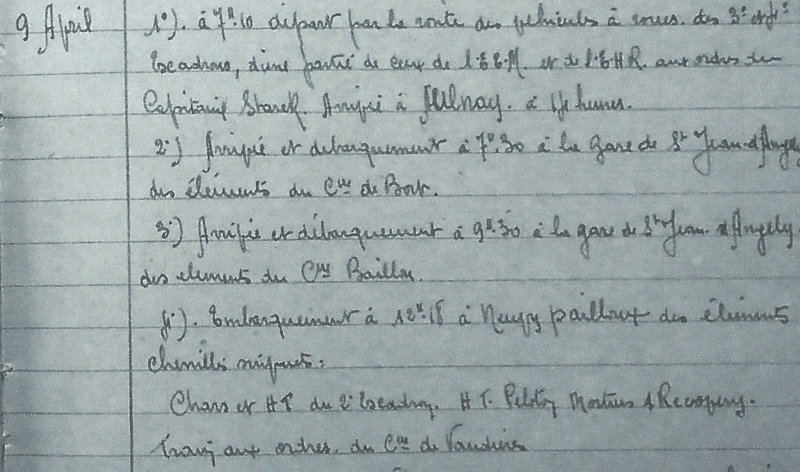 9 Avril 1°). à 7h.10 départ par la route des véhicules à roues des 3° et 4°
Escadrons, d'une partie de ceux de l'E.E.M. et de l'E.H.R. aux ordres du
Capitaine Starck. Arrivée à AULNAY. à 17 heures.
2°) Arrivée et débarquement à 7h.30 à la gare de St Jean-d'Angely
des éléments du Cne de Bort.
3°) Arrivée et débarquement à 9h.30 à la gare de St Jean d'Angely
des éléments du Cne
4°). Embarquement à 12h.15 à Neuvy pailloux des éléments
chenillés suivants:
Chars et HT du 2° Escadron. HT. Peloton Mortiers 4 Recovery.
Train aux ordres du Cne de